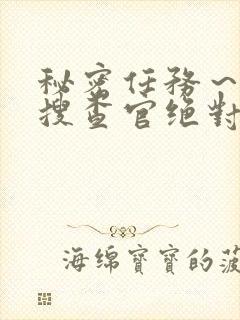 秘密任務～
搜查官绝對
海绵寶寶的菠